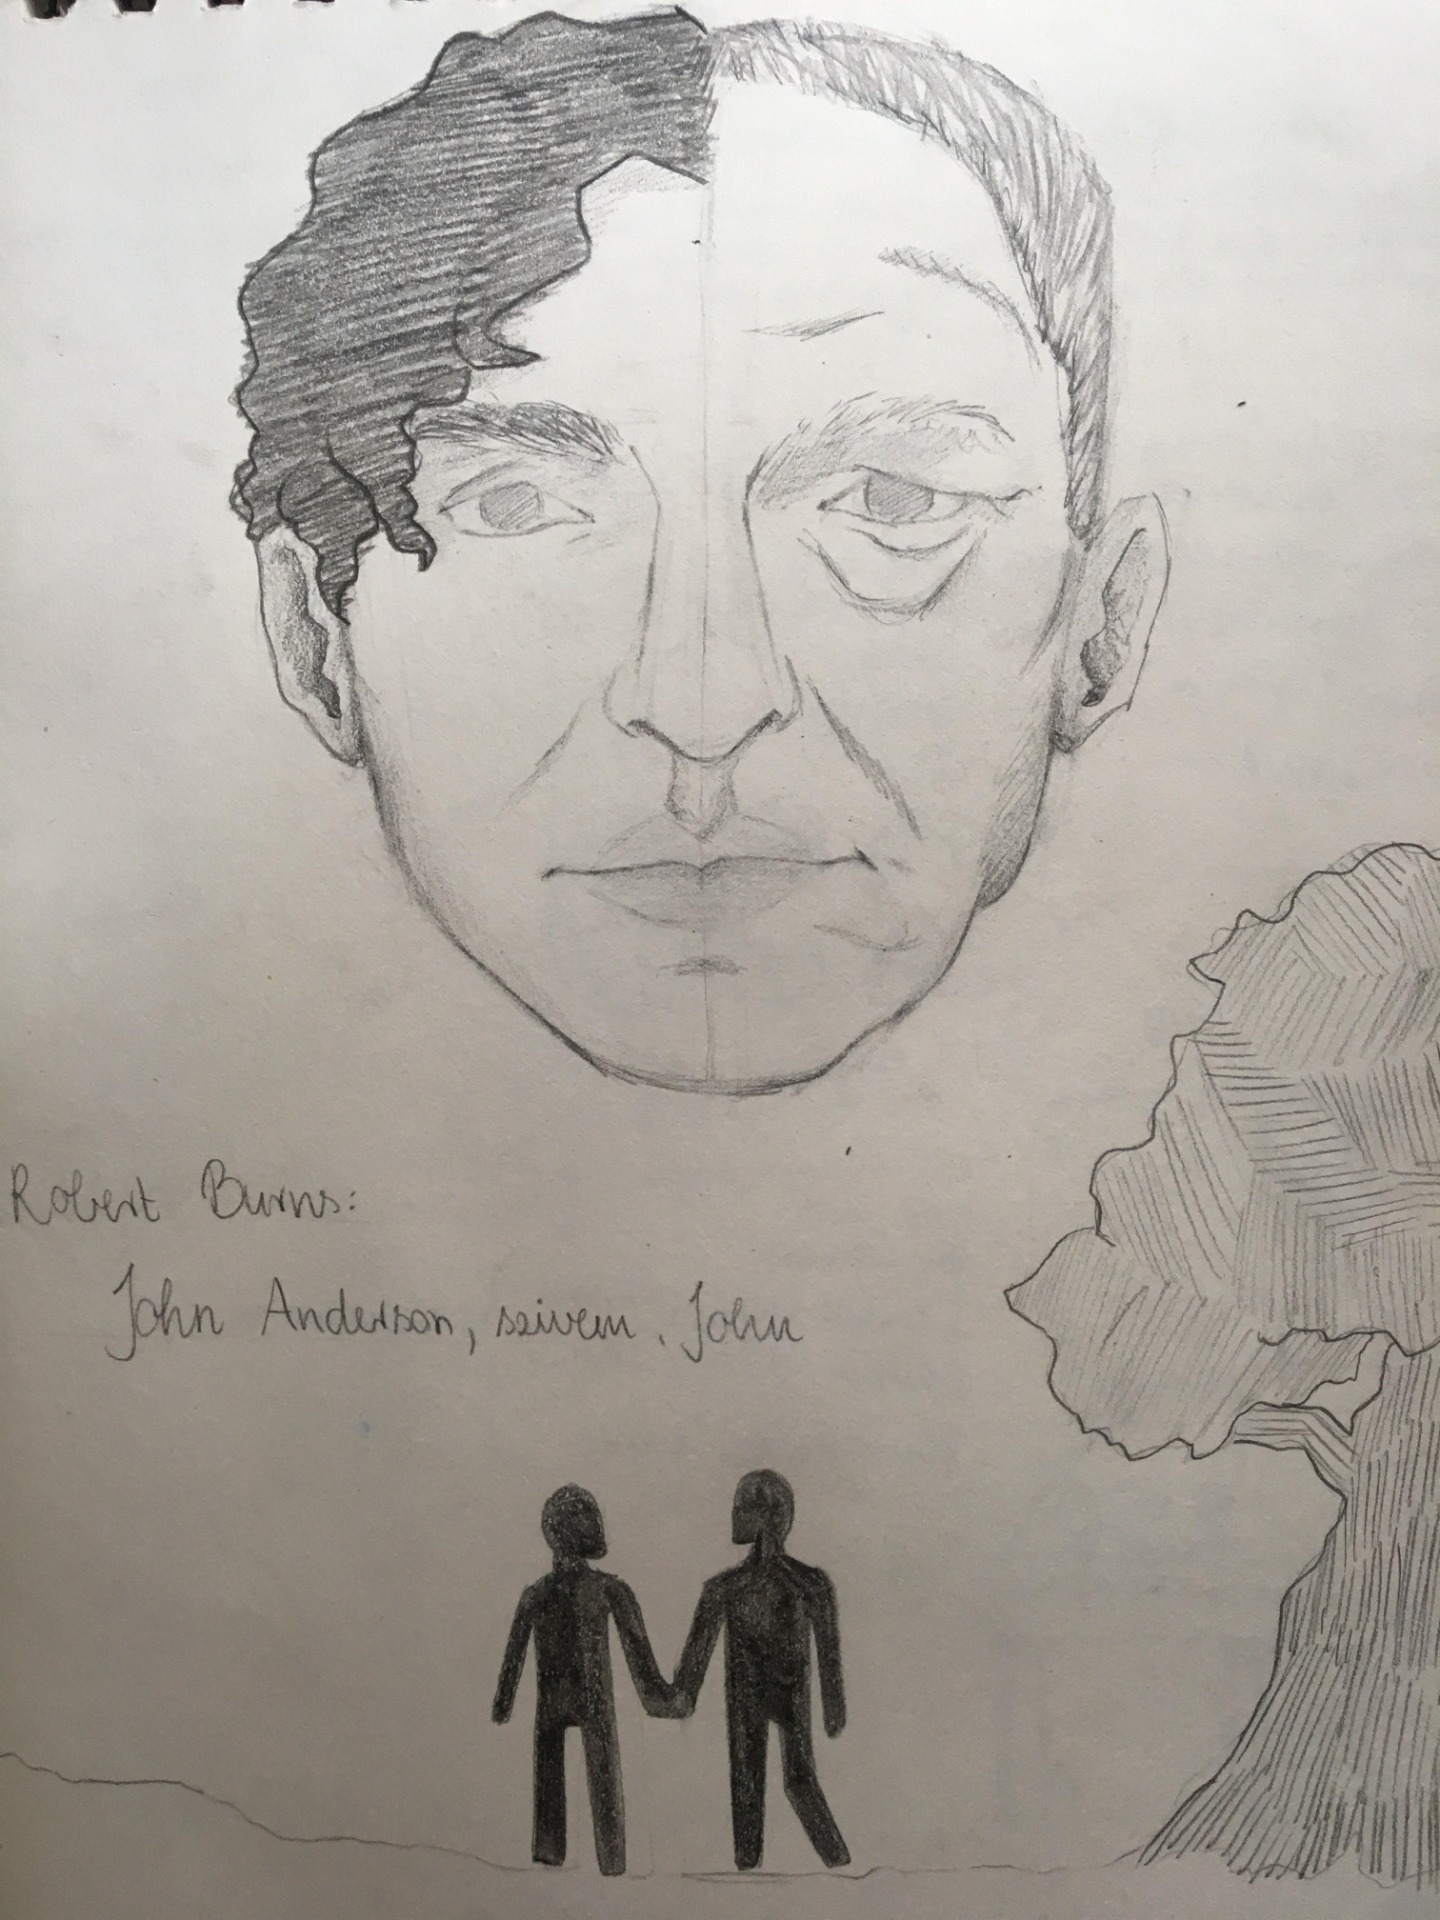 Robert Burns:
John Anderson, szivem, John